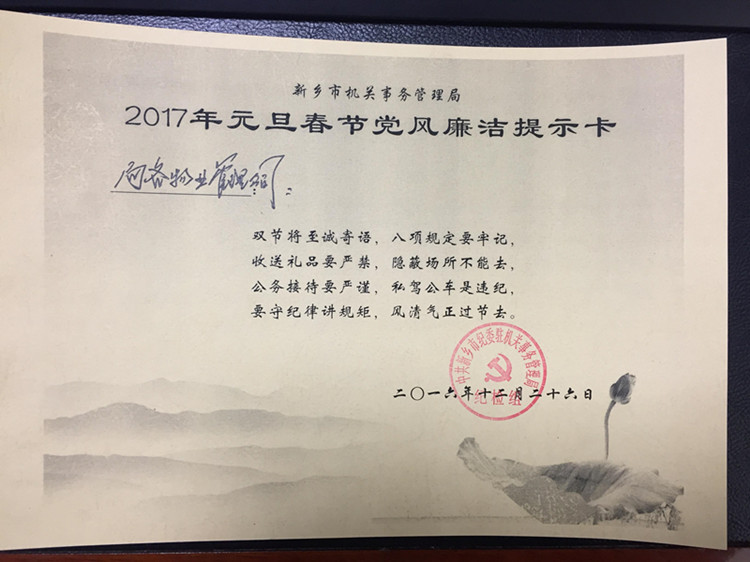 新乡市机关事务管理局
2017年元旦春节党风廉洁提示卡
物业管理
双节将至诚寄语，八项规定要牢记，
收送礼品要严禁，隐蔽场所不能去，
公务接待要严谨，私驾公车是违纪，
要守纪律讲规矩，风清气正过节去。
中共新乡市纪委驻机关事务管理局
纪检组
二〇一六年十二月二十六日